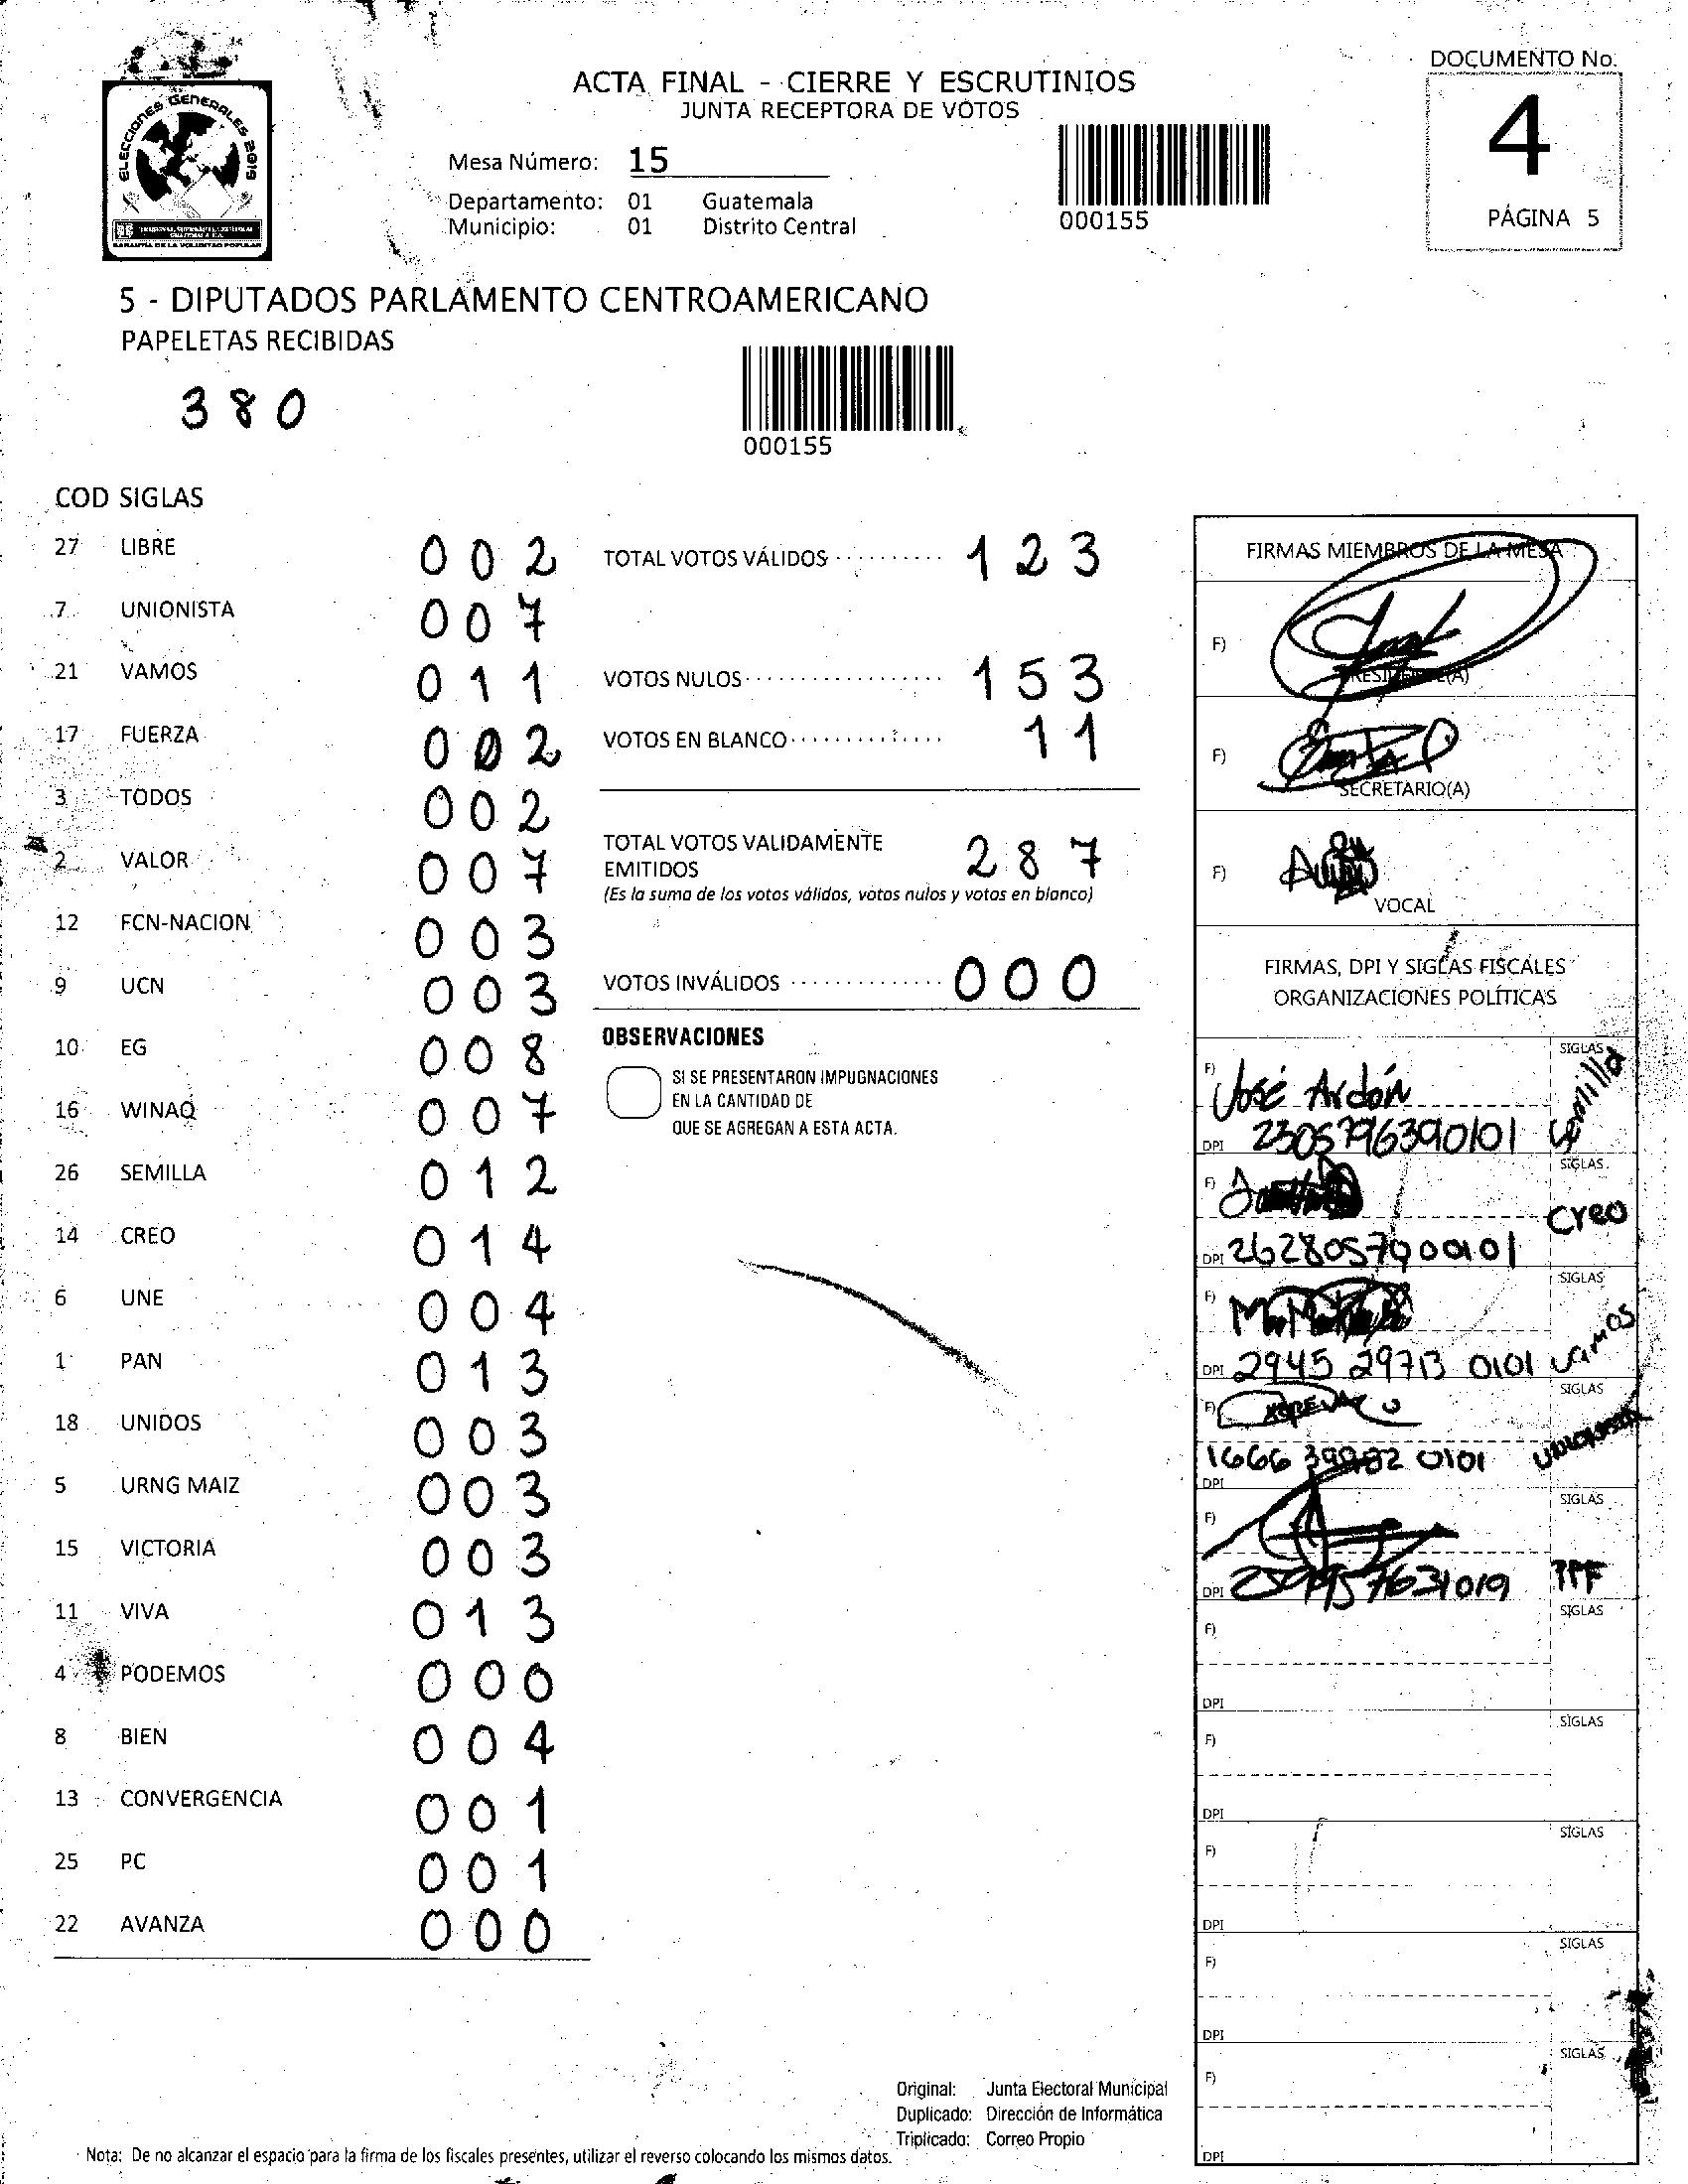 DOCUMENTO No.
4
PÁGINA 5
ELECCIONES GENERALES 2019
GARANTÍA DE LA VOLUNTAD POPULAR
ACTA FINAL - CIERRE Y ESCRUTINIOS
JUNTA RECEPTORA DE VOTOS
Mesa Número: 15
Departamento: 01 Guatemala
Municipio: 01 Distrito Central
000155
5 - DIPUTADOS PARLAMENTO CENTROAMERICANO
PAPELETAS RECIBIDAS
380
000155
COD SIGLAS
27 LIBRE 002
7 UNIONISTA 007
21 VAMOS 011
17 FUERZA 002
3 TODOS 002
2 VALOR 007
12 FCN-NACION 003
9 UCN 003
10 EG 008
16 WINAQ 007
26 SEMILLA 012
14 CREO 014
6 UNE 004
1 PAN 013
18 UNIDOS 003
5 URNG MAIZ 003
15 VICTORIA 003
11 VIVA 013
4 PODEMOS 000
8 BIEN 004
13 CONVERGENCIA 001
25 PC 001
22 AVANZA 000
TOTAL VOTOS VÁLIDOS 123
VOTOS NULOS 153
VOTOS EN BLANCO 11
TOTAL VOTOS VALIDAMENTE
EMITIDOS 287
(Es la suma de los votos válidos, votos nulos y votos en blanco)
VOTOS INVÁLIDOS 000
OBSERVACIONES
SI SE PRESENTARON IMPUGNACIONES
EN LA CANTIDAD DE
QUE SE AGREGAN A ESTA ACTA.
FIRMAS MIEMBROS DE LA MESA
F)
PRESIDENTE(A)
F)
SECRETARIO(A)
F)
VOCAL
FIRMAS, DPI Y SIGLAS FISCALES
ORGANIZACIONES POLÍTICAS
SIGLAS
F) José Ardón
DPI 2305796390101 Semilla
SIGLAS
F)
Creo
DPI
SIGLAS
F)
DPI 2945 29713 0101 Vamos
SIGLAS
F)
1666 0101 Unionista
DPI
SIGLAS
F)
DPI
SIGLAS
F)
DPI
SIGLAS
F)
DPI
SIGLAS
F)
DPI
SIGLAS
F)
DPI
SIGLAS
F)
DPI
Original: Junta Electoral Municipal
Duplicado: Dirección de Informática
Triplicado: Correo Propio
Nota: De no alcanzar el espacio para la firma de los fiscales presentes, utilizar el reverso colocando los mismos datos.